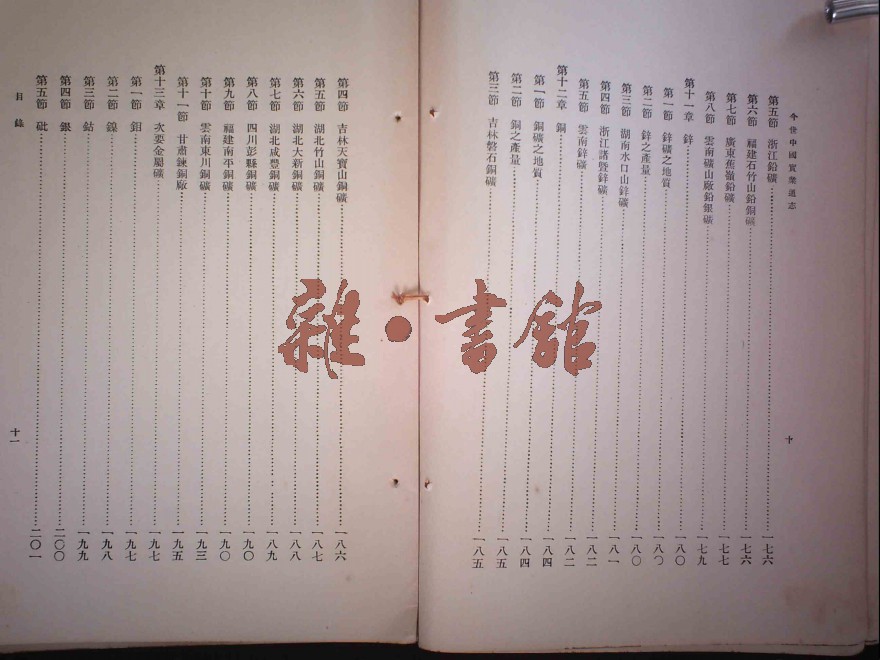 今世中國實業通志
十
第五節 浙江鉛礦 一七六
第六節 福建石竹山鉛銅礦 一七六
第七節 廣東蕉嶺鉛礦 一七七
第八節 雲南礦山廠鉛銀礦 一七九
第十一章 鋅 一八〇
第一節 鋅礦之地質 一八〇
第二節 鋅之產量 一八〇
第三節 湖南水口山鋅礦 一八一
第四節 浙江諸暨鋅礦 一八二
第五節 雲南鋅礦 一八二
第十二章 銅 一八四
第一節 銅礦之地質 一八四
第二節 銅之產量 一八五
第三節 吉林磐石銅礦 一八五
第四節 吉林天寶山銅礦 一八六
第五節 湖北竹山銅礦 一八七
第六節 湖北大新銅礦 一八八
第七節 湖北咸豐銅礦 一八九
第八節 四川彭縣銅礦 一九〇
第九節 福建南平銅礦 一九〇
第十節 雲南東川銅礦 一九三
第十一節 甘肅鍊銅廠 一九五
第十三章 次要金屬礦 一九七
第一節 鉬 一九七
第二節 鎳 一九八
第三節 鈷 一九九
第四節 銀 二〇〇
第五節 砒 二〇一
目錄
十一
雜·書館